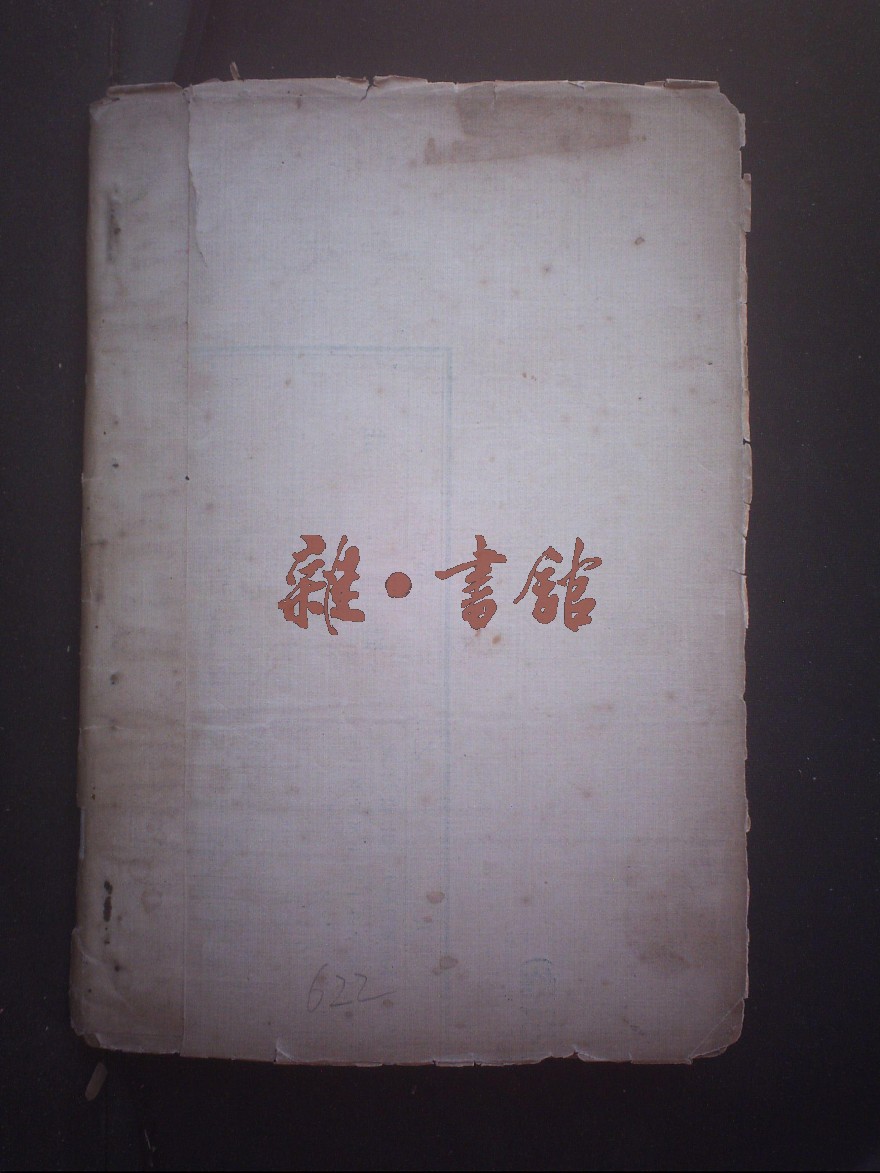 雜·書館
622